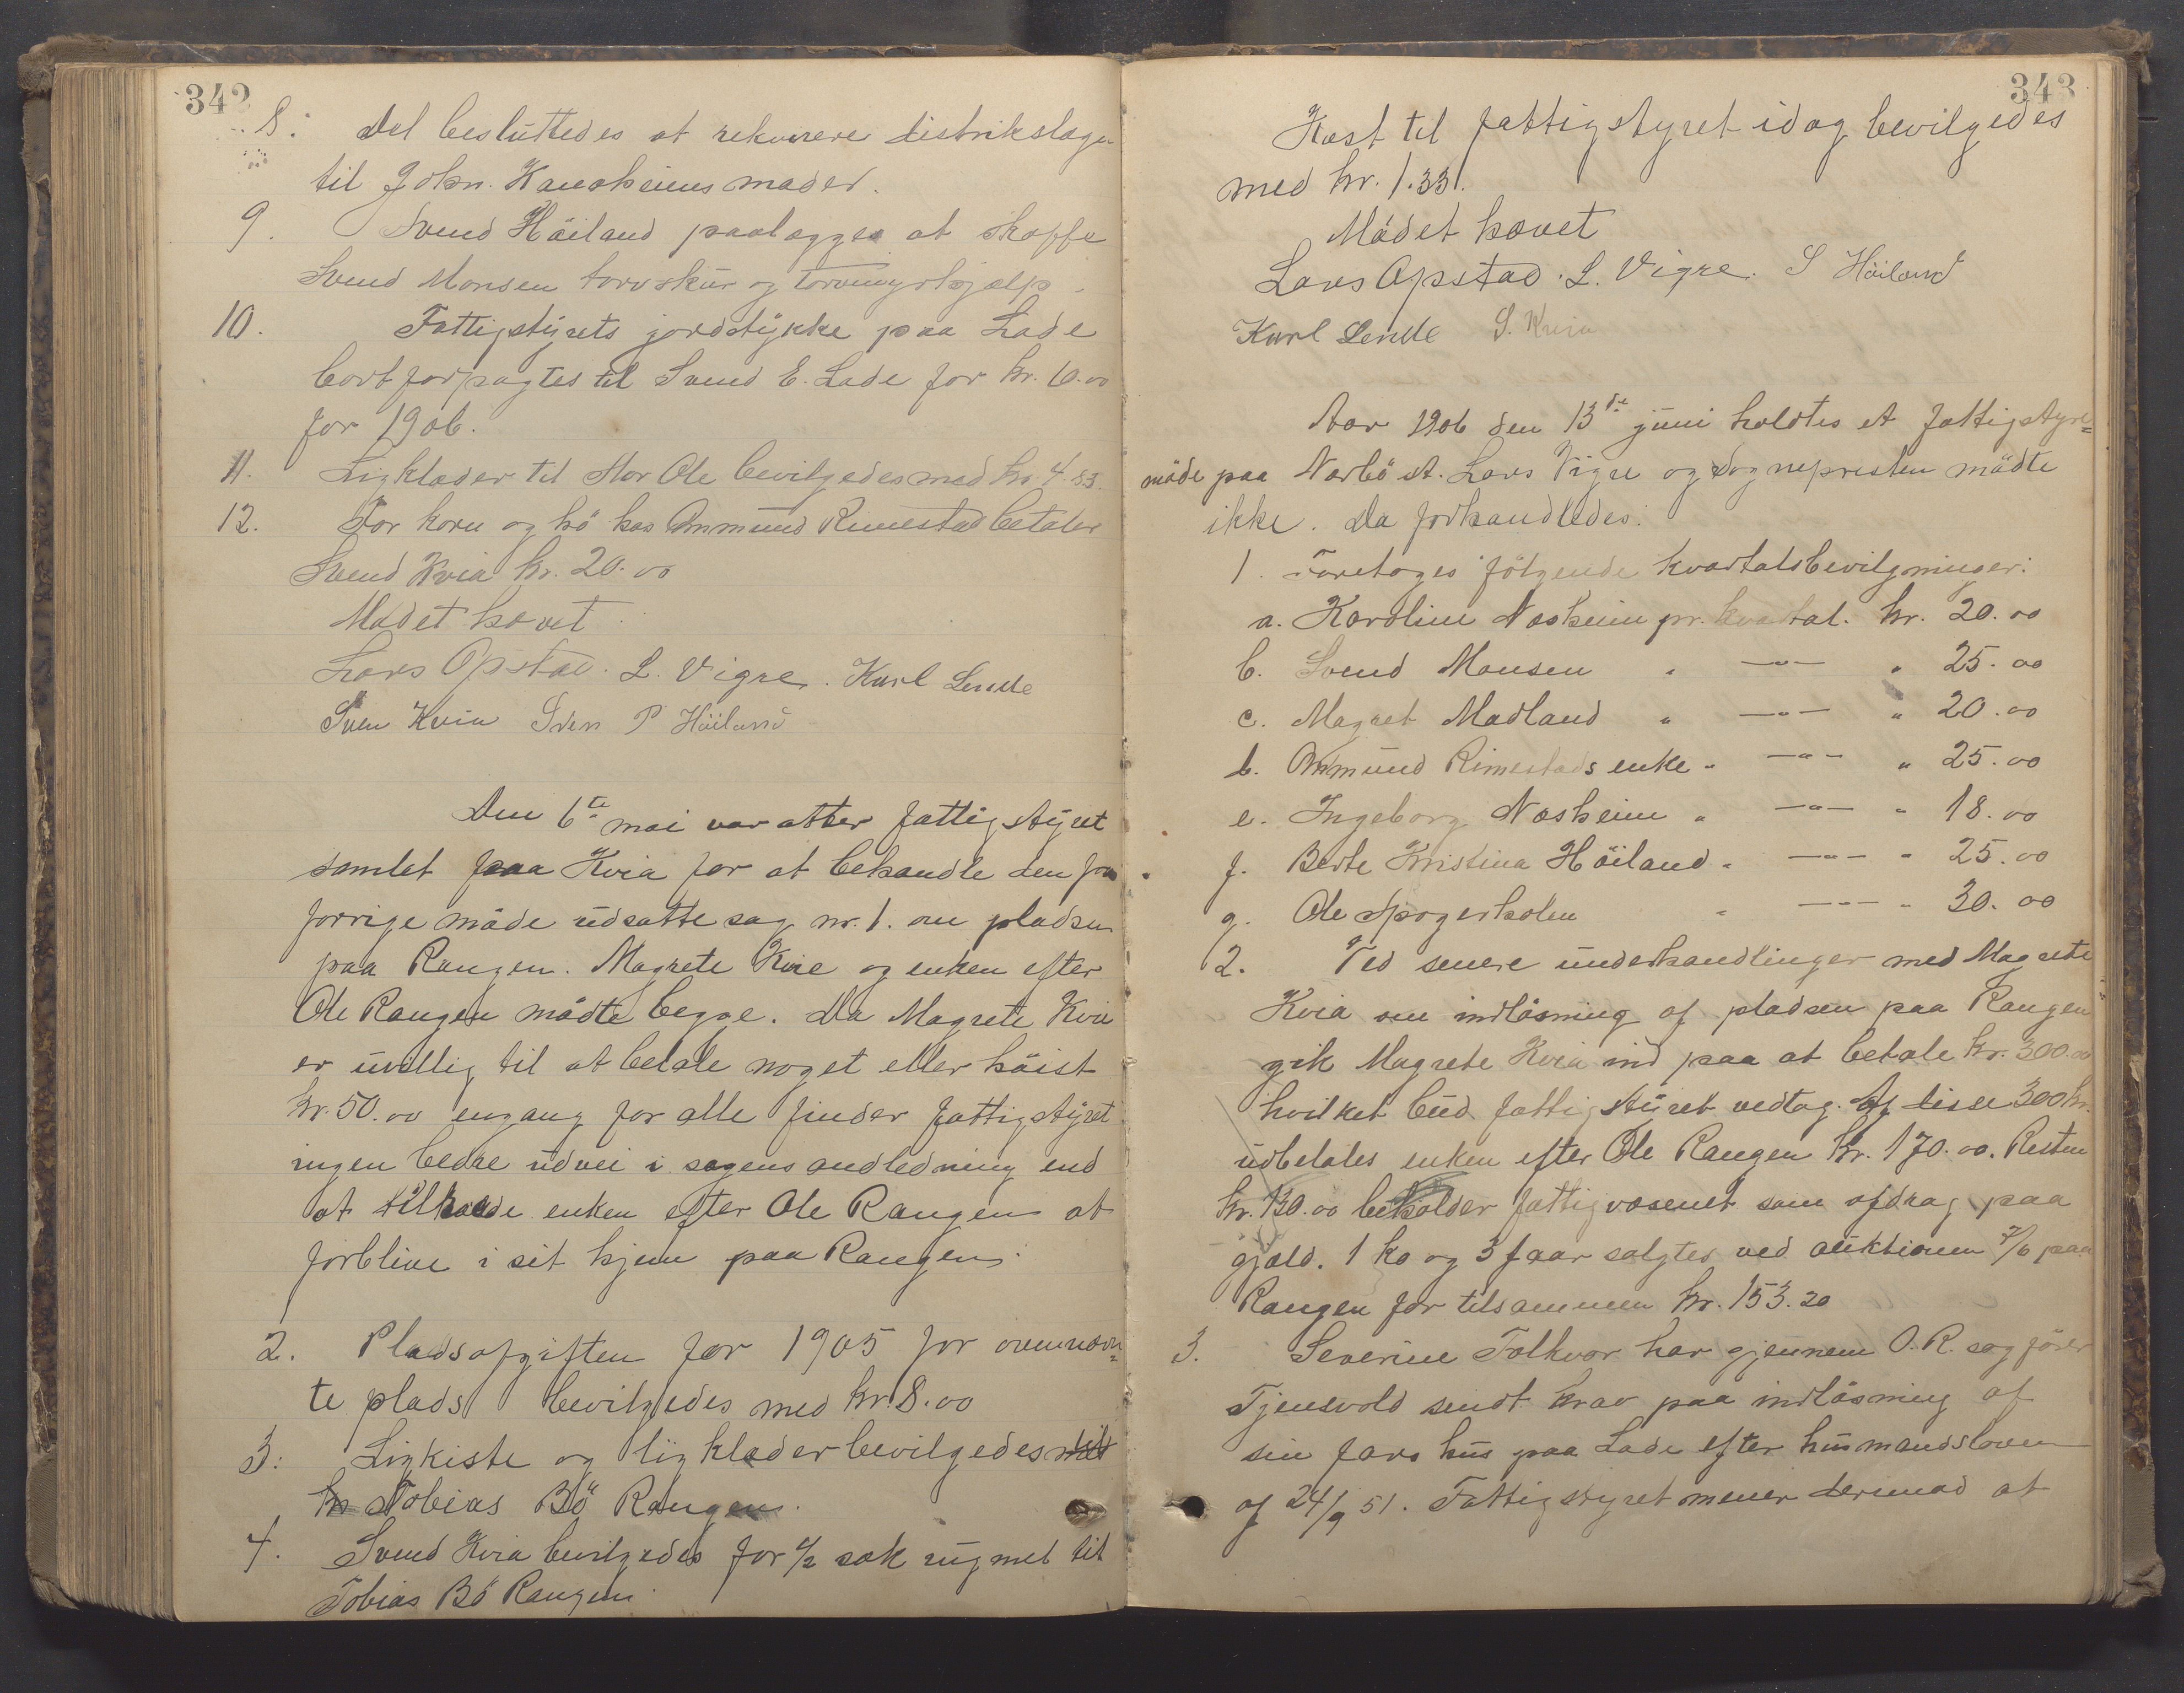 342
8. Det besluttedes at rekvirere distrikslægen
til John Kanaheims moder.
9. Svend Höiland paalægges at skaffe
Svend Monsen torvskur og torvmyrhjælp.
10. Fattigstyrets jordstykke paa Lade
bortforpagtes til Svend E. Lade for kr. 10.00
for 1906.
11. Ligklæder til Stor Ole bevilgedes med kr. 4.83.
12. For korn og hö hos Ommund Rimestad betaler
Svend Kvia kr. 20.00
Mödet hævet
Lars Opstad. L. Vigre. Karl Lende
Sven Kvia Sven P Höiland
Den 6te mai var atter fattigstyret
samlet paa Kvia for at behandle den fra
forrige möde udsatte sag nr. 1. om pladsen
paa Rangen. Magrete Kvie og enken efter
Ole Rangen mödte begge. Da Magrete Kvie
er uvillig til at betale noget eller höist
kr. 50.00 engang for alle finder fattigstyret
ingen bedre udvei i sagens andledning end
at tilraade enken efter Ole Rangen at
forblive i sit hjem paa Rangen.
2. Pladsafgiften for 1905 for ovennævn=
te plads bevilgedes med kr. 8.00
3. Ligkiste og ligklæder bevilgedes til
kr Tobias Bö Rangen.
4. Svend Kvia bevilgedes for 1/2 sæk rugmel til
Tobias Bö Rangen.
343
Kost til fattigstyret idag bevilgedes
med kr. 1.33.
Mödet hævet
Lars Opstad. L. Vigre. S Höiland
Karl Lende S. Kvia
Aar 1906 den 13de juni holdtes et fattigstyre=
möde paa Narbö st. Lars Vigre og Sognepresten mödte
ikke. Da forhandledes:
1. Foretoges fölgende kvartalsbevilgninger:
a. Karoline Næsheim pr. kvartal. kr. 20.00
b. Svend Monsen " —"— " 25.00
c. Magret Madland " —"— " 20.00
d. Ommund Rimestads enke " —"— " 25.00
e. Ingeborg Næsheim " —"— " 18.00
f. Berte Kristina Höiland " —"— " 25.00
g. Ole " —"— " 30.00
2. Ved senere underhandlinger med Magrete
Kvia om indlösning af pladsen paa Rangen
gik Magrete Kvia ind paa at betale kr. 300.00
hvilket bud fattigstyret vedtog. Af disse 300 kr.
udbetales enken efter Ole Rangen kr. 170.00. Resten
kr. 130.00 beholder fattigvæsenet som afdrag paa
gjæld. 1 ko og 3 faar solgtes ved auktionen 7/6 paa
Rangen for tilsammen kr. 153.20
3. Severine Folkvor har gjennem O.R. sagförer
Tjensvold sendt krav paa indlösning af
sin fars hus paa Lade efter husmandsloven
af 24/9 51. Fattigstyret mener derimod at